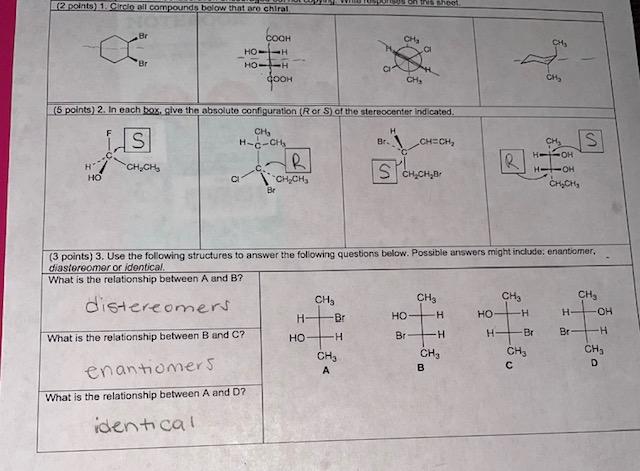 (2 points) 1. Circle all compounds below that are chiral.
Br
Br
COOH
HO H
HO H
COOH
CH₃
H Cl
Cl H
CH₃
CH₃
CH₃
(5 points) 2. In each box, give the absolute configuration (R or S) of the stereocenter indicated.
F S
C
H CH₂CH₃
HO
CH₃
H-C-CH₃
C R
Cl CH₂CH₃
Br
H
Br CH=CH₂
C
S CH₂CH₂Br
CH₃ S
H OH
R H OH
CH₂CH₃
(3 points) 3. Use the following structures to answer the following questions below. Possible answers might include: enantiomer,
diastereomer or identical.
What is the relationship between A and B?
distereomers
What is the relationship between B and C?
enantiomers
What is the relationship between A and D?
identical
CH₃
H Br
HO H
CH₃
A
CH₃
HO H
Br H
CH₃
B
CH₃
HO H
H Br
CH₃
C
CH₃
H OH
Br H
CH₃
D